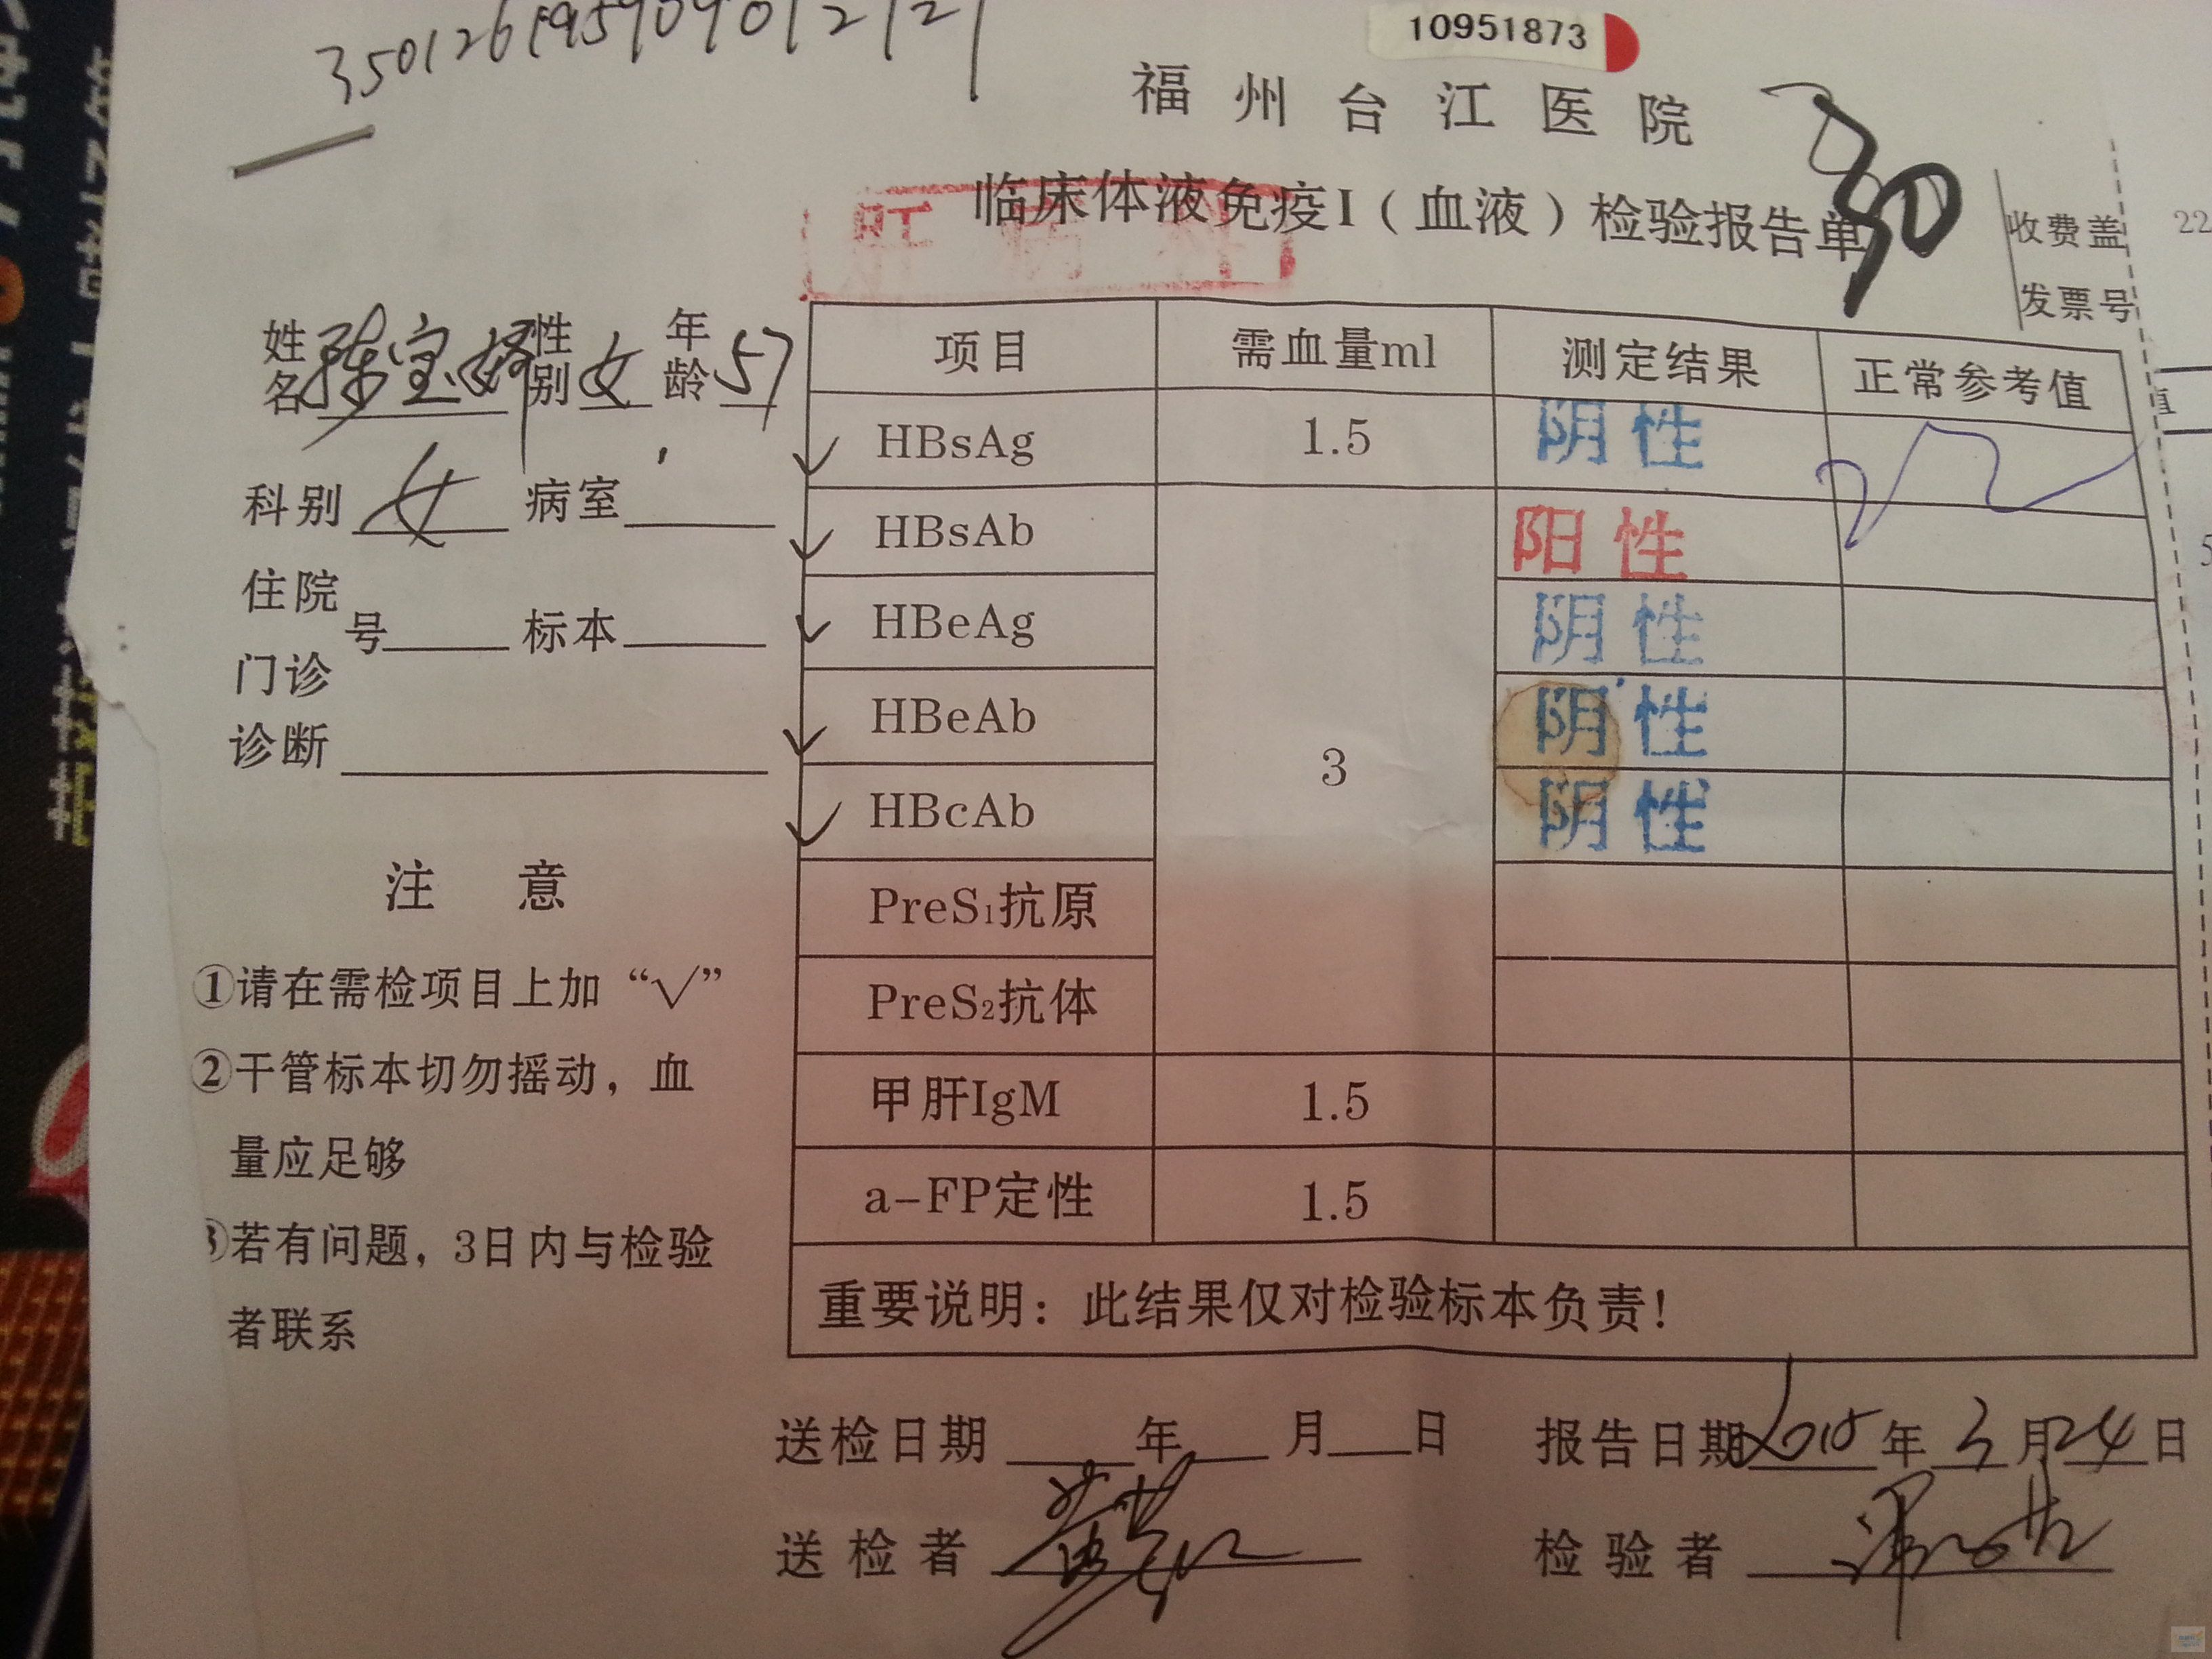 10951873
福州台江医院
临床体液免疫I（血液）检验报告单
30
收费盖
发票号
22
姓名 陈宝 性别 女 年龄 57
科别 女 病室
住院
门诊 号 标本
诊断
注 意
①请在需检项目上加“√”
②干管标本切勿摇动，血
量应足够
③若有问题，3日内与检验
者联系
项目 需血量ml 测定结果 正常参考值
✓ HBsAg 1.5 阴性
✓ HBsAb 3 阳性
✓ HBeAg 阴性
✓ HBeAb 阴性
✓ HBcAb 阴性
PreS₁抗原
PreS₂抗体
甲肝IgM 1.5
a-FP定性 1.5
重要说明：此结果仅对检验标本负责！
送检日期 年 月 日 报告日期 2015年3月24日
送检者 检验者